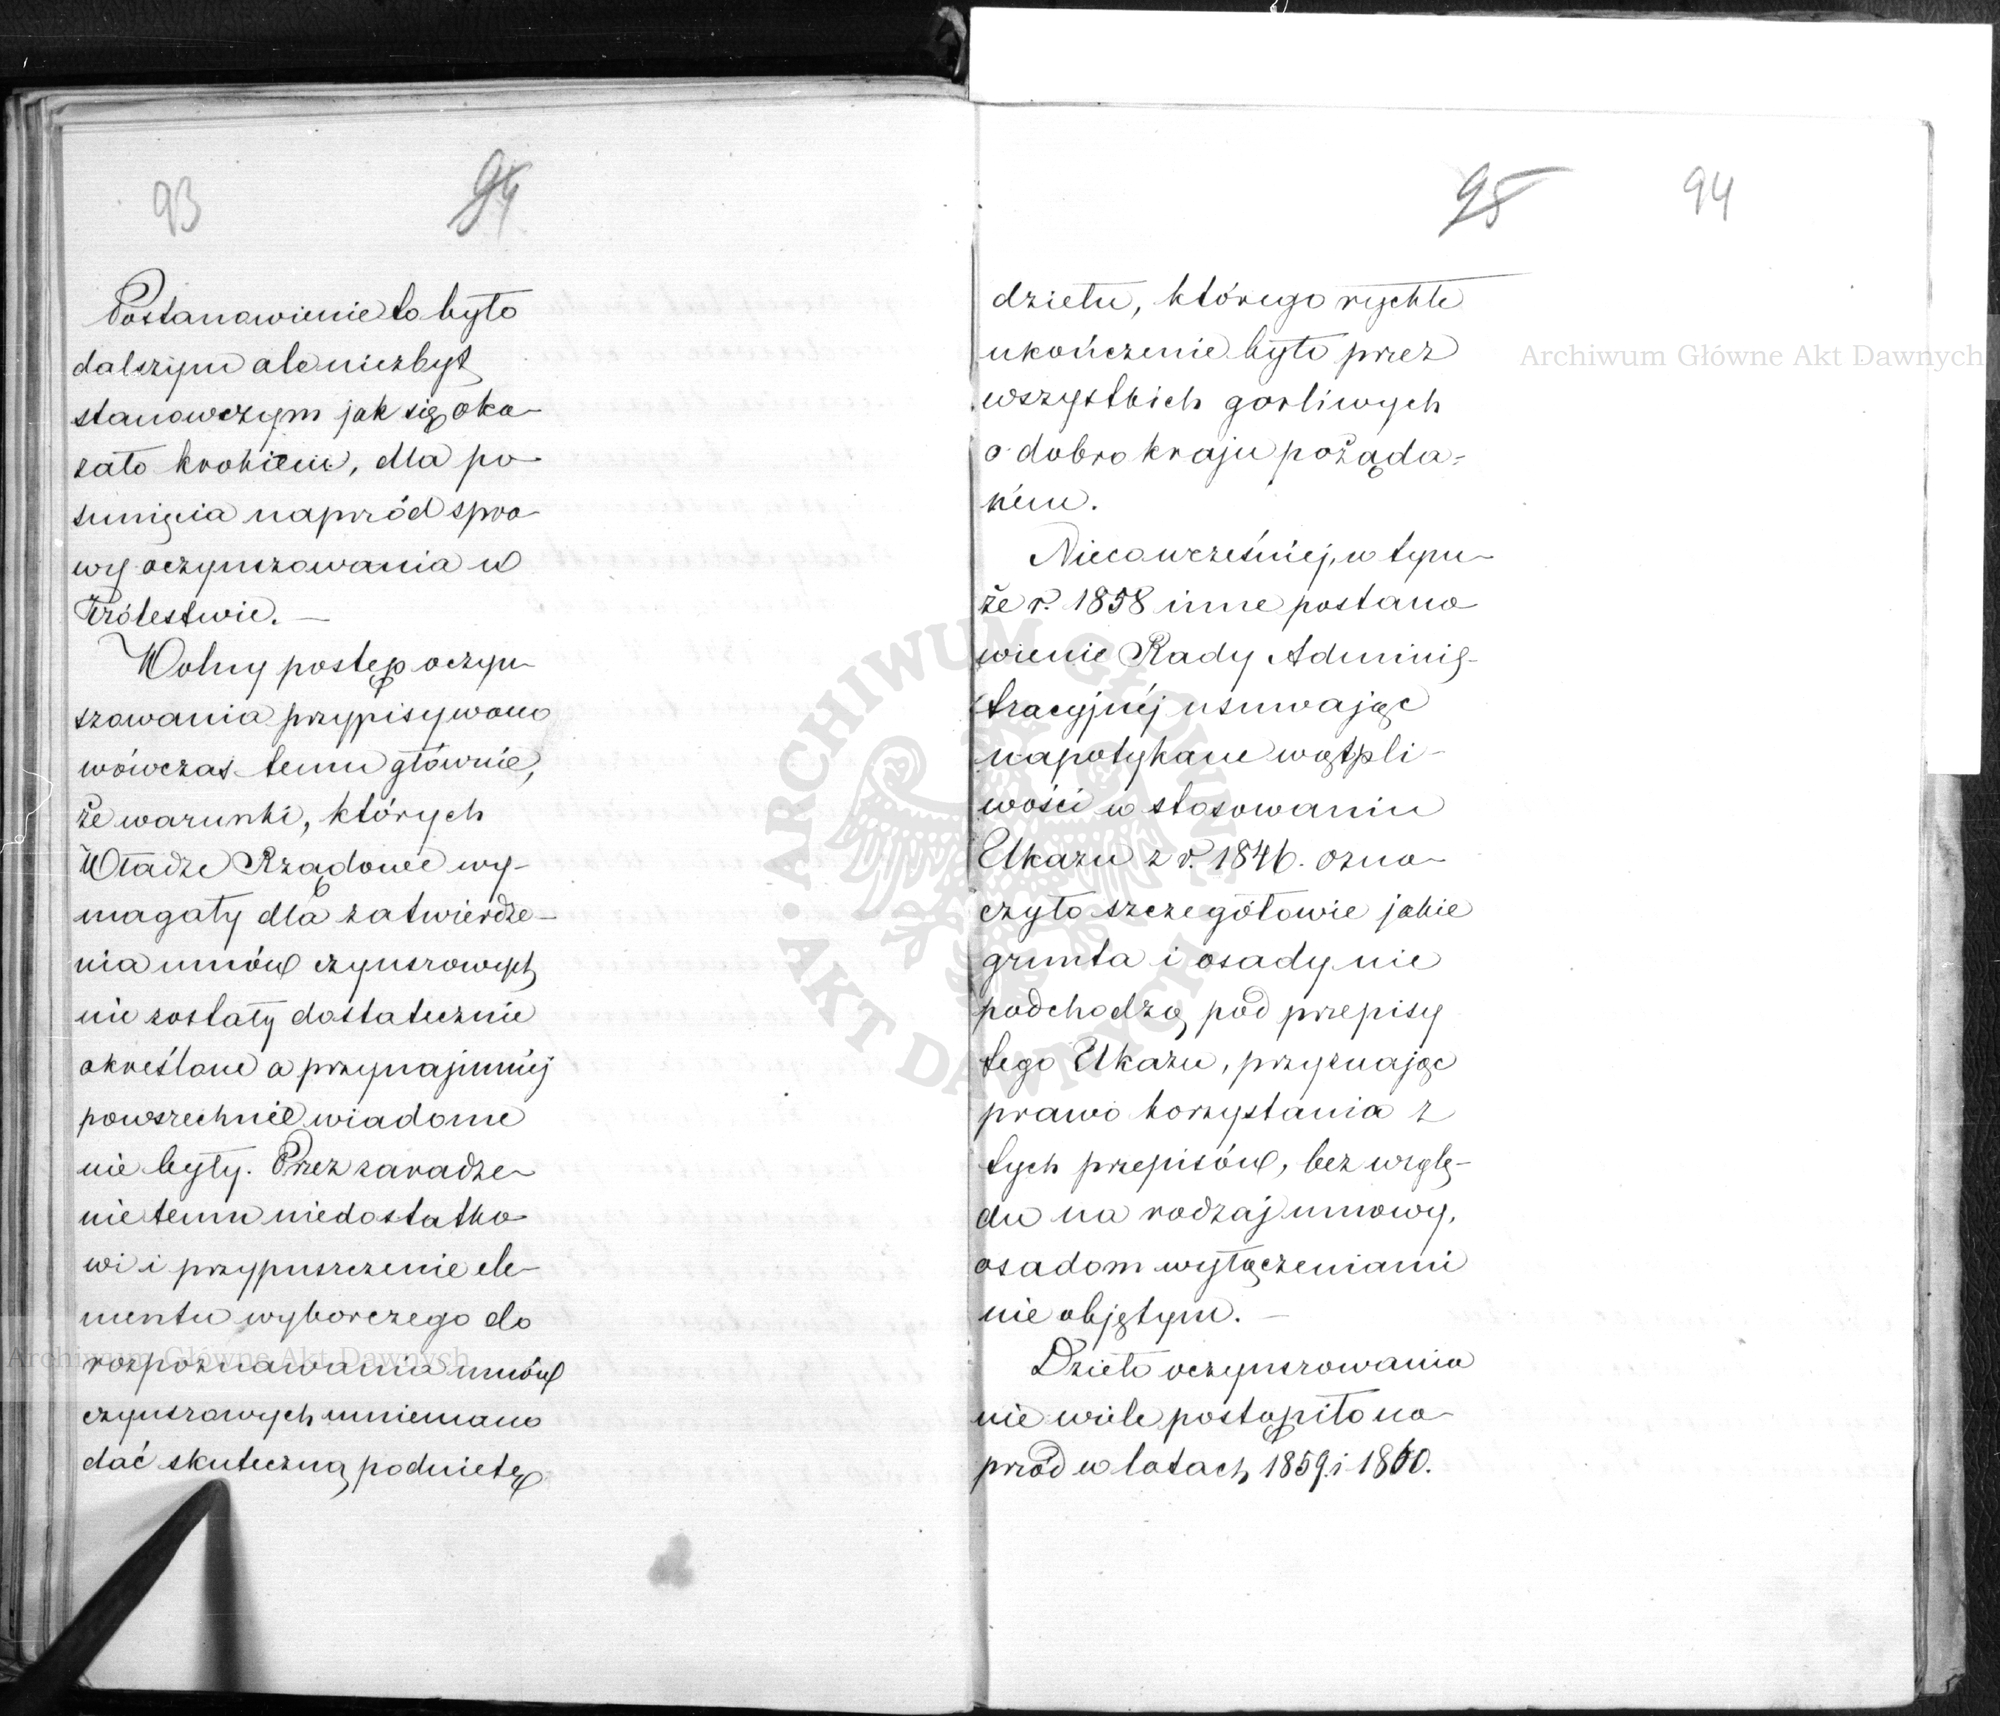 93
94
Postanowienie to było
dalszym ale niezbyt
stanowczym jak się oka-
zało krokiem, dla po-
sunięcia naprzód spra-
wy oczynszowania w
Królestwie. —
Wolny postęp oczyn-
szowania przypisywano
wówczas temu głównie,
że warunki, których
Władze Rządowe wy-
magały dla zatwierdze-
nia umów czynszowych
nie zostały dostatecznie
określone a przynajmniéj
powszechnie wiadome
nie były. Przez zaradze-
nie temu niedostatko-
wi i przypuszczenie ele-
mentu wyborczego do
rozpoznawania umów
czynszowych mniemano
dać skuteczną podnietę
95
94
dziełu, którego rychłe
ukończenie było przez
wszystkich gorliwych
o dobro kraju pożąda-
ném.
Nieco wcześniej, w tym-
że r. 1858 inne postano-
wienie Rady Adminis-
tracyjnéj usuwając
napotykane wątpli-
wości w stosowaniu
Ukazu z r. 1846. ozna-
czyło szczegółowie jakie
grunta i osady nie
podchodzą pod przepisy
tego Ukazu, przyznając
prawo korzystania z
tych przepisów, bez wzglę-
du na rodzaj umowy,
osadom wyłączeniami
nie objętym. —
Dzieło oczynszowania
nie wiele postąpiło na-
przód w latach 1859 i 1860.
Archiwum Główne Akt Dawnych
Archiwum Główne Akt Dawnych
ARCHIWUM GŁÓWNE
AKT DAWNYCH